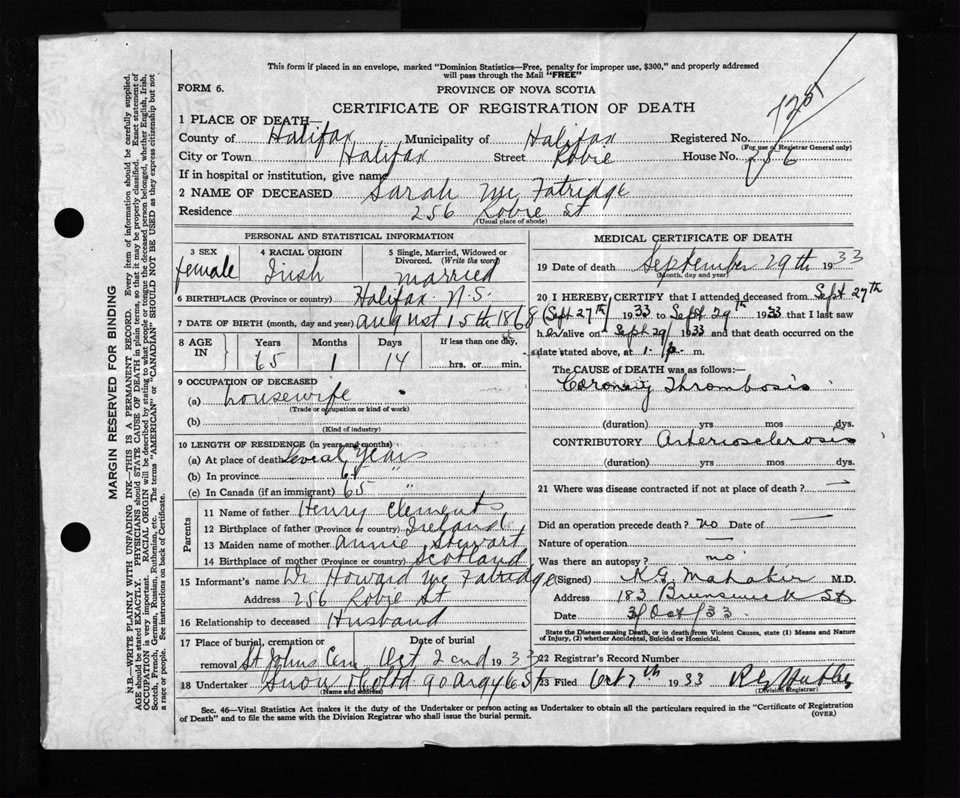 This form if placed in an envelope, marked "Dominion Statistics—Free, penalty for improper use, $300," and properly addressed
will pass through the Mail "FREE"
FORM 6.
PROVINCE OF NOVA SCOTIA
CERTIFICATE OF REGISTRATION OF DEATH
1 PLACE OF DEATH—
County of Halifax Municipality of Halifax Registered No.
(For use of Registrar General only)
City or Town Halifax Street Robie House No. 256
If in hospital or institution, give name
2 NAME OF DECEASED Sarah Mc Fatridge
Residence 256 Robie St
(Usual place of abode)
PERSONAL AND STATISTICAL INFORMATION
3 SEX female
4 RACIAL ORIGIN Irish
5 Single, Married, Widowed or Divorced. (Write the word) married
6 BIRTHPLACE (Province or country) Halifax N.S.
7 DATE OF BIRTH (month, day and year) august 15th 1868
8 AGE IN Years 65 Months 1 Days 14 If less than one day, hrs. or min.
9 OCCUPATION OF DECEASED
(a) housewife
(Trade or occupation or kind of work)
(b)
(Kind of industry)
10 LENGTH OF RESIDENCE (in years and months)
(a) At place of death Years
(b) In province 65 "
(c) In Canada (if an immigrant) 65 "
Parents
11 Name of father Henry Clements
12 Birthplace of father (Province or country) Ireland
13 Maiden name of mother annie Stewart
14 Birthplace of mother (Province or country) Scotland
15 Informant's name Dr Howard Mc Fatridge
Address 256 Robie St
16 Relationship to deceased Husband
17 Place of burial, cremation or removal St Johns Cem Date of burial Oct 2nd 1933
18 Undertaker Snow 90 Argyle St
(Name and address)
MEDICAL CERTIFICATE OF DEATH
19 Date of death September 29th 1933
(Month, day and year)
20 I HEREBY CERTIFY that I attended deceased from Sept 27th
(Sept 27th) 1933 to Sept 29th 1933 that I last saw
her alive on Sept 29 1933 and that death occurred on the
date stated above, at 1 p. m.
The CAUSE OF DEATH was as follows:—
Coronary Thrombosis
(duration) yrs mos. dys.
CONTRIBUTORY Arteriosclerosis
(duration) yrs mos. dys.
21 Where was disease contracted if not at place of death?
Did an operation precede death? no Date of —
Nature of operation —
Was there an autopsy? no
(Signed) M.D.
Address 183 Brunswick St
Date 3/Oct/33
State the Disease causing Death, or in death from Violent Causes, state (1) Means and Nature
of Injury, (2) whether Accidental, Suicidal or Homicidal.
22 Registrar's Record Number
23 Filed Oct 7th 1933
(Division Registrar)
Sec. 46—Vital Statistics Act makes it the duty of the Undertaker or person acting as Undertaker to obtain all the particulars required in the "Certificate of Registration
of Death" and to file the same with the Division Registrar who shall issue the burial permit.
(OVER)
MARGIN RESERVED FOR BINDING
N.B.—WRITE PLAINLY WITH UNFADING INK—THIS IS A PERMANENT RECORD. Every item of information should be carefully supplied.
AGE should be stated EXACTLY. PHYSICIANS should STATE CAUSE OF DEATH in plain terms, so that it may be properly classified. Exact statement of
OCCUPATION is very important. RACIAL ORIGIN will be described by stating to what people or tongue the deceased person belonged, whether English, Irish,
Scotch, French, German, Russian, Ruthenian, etc. The terms "AMERICAN" or "CANADIAN" SHOULD NOT BE USED as they express citizenship but not
a race or people. See instructions on back of Certificate.